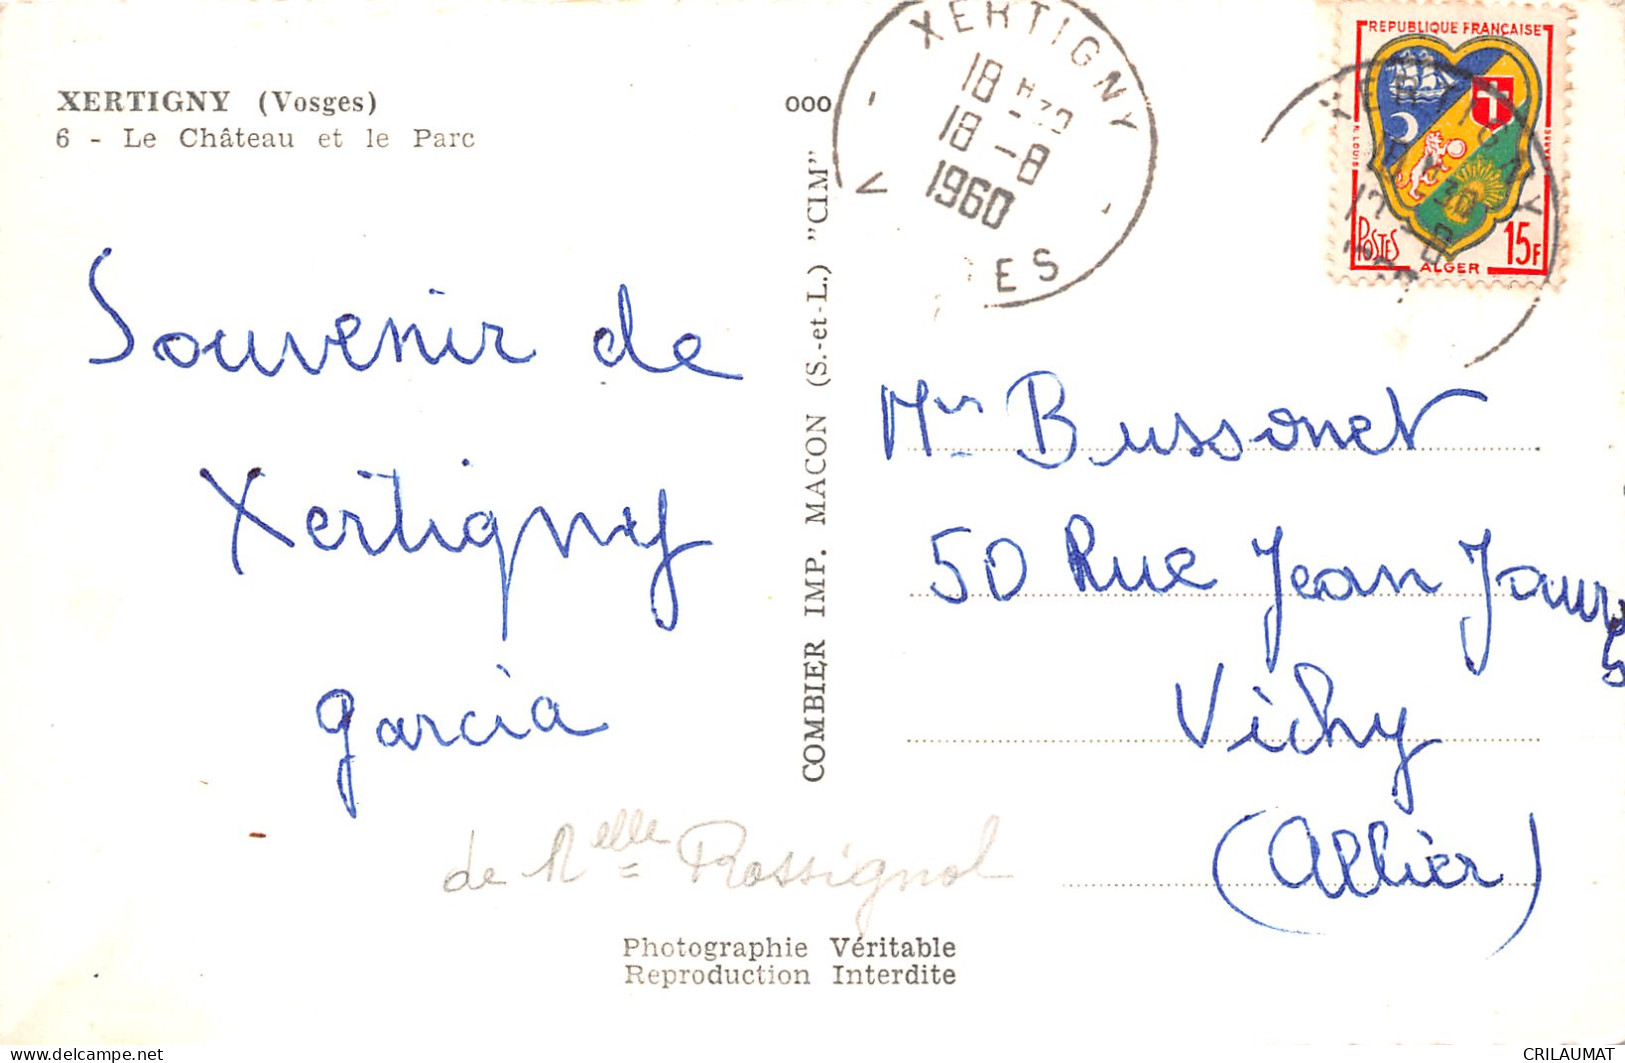 XERTIGNY (Vosges)
6 - Le Château et le Parc
Souvenir de
Xertigny
garcia
de Melle Rossignol
Photographie Véritable
Reproduction Interdite
COMBIER IMP. MACON (S.-et-L.) "CIM"
000
XERTIGNY
18 H30
18 -8
1960
V ES
REPUBLIQUE FRANÇAISE
POSTES
ALGER
15F
Mr Bussonet
50 Rue Jean Jaurès
Vichy
(Allier)
CRILAUMAT
https://www.delcampe.net